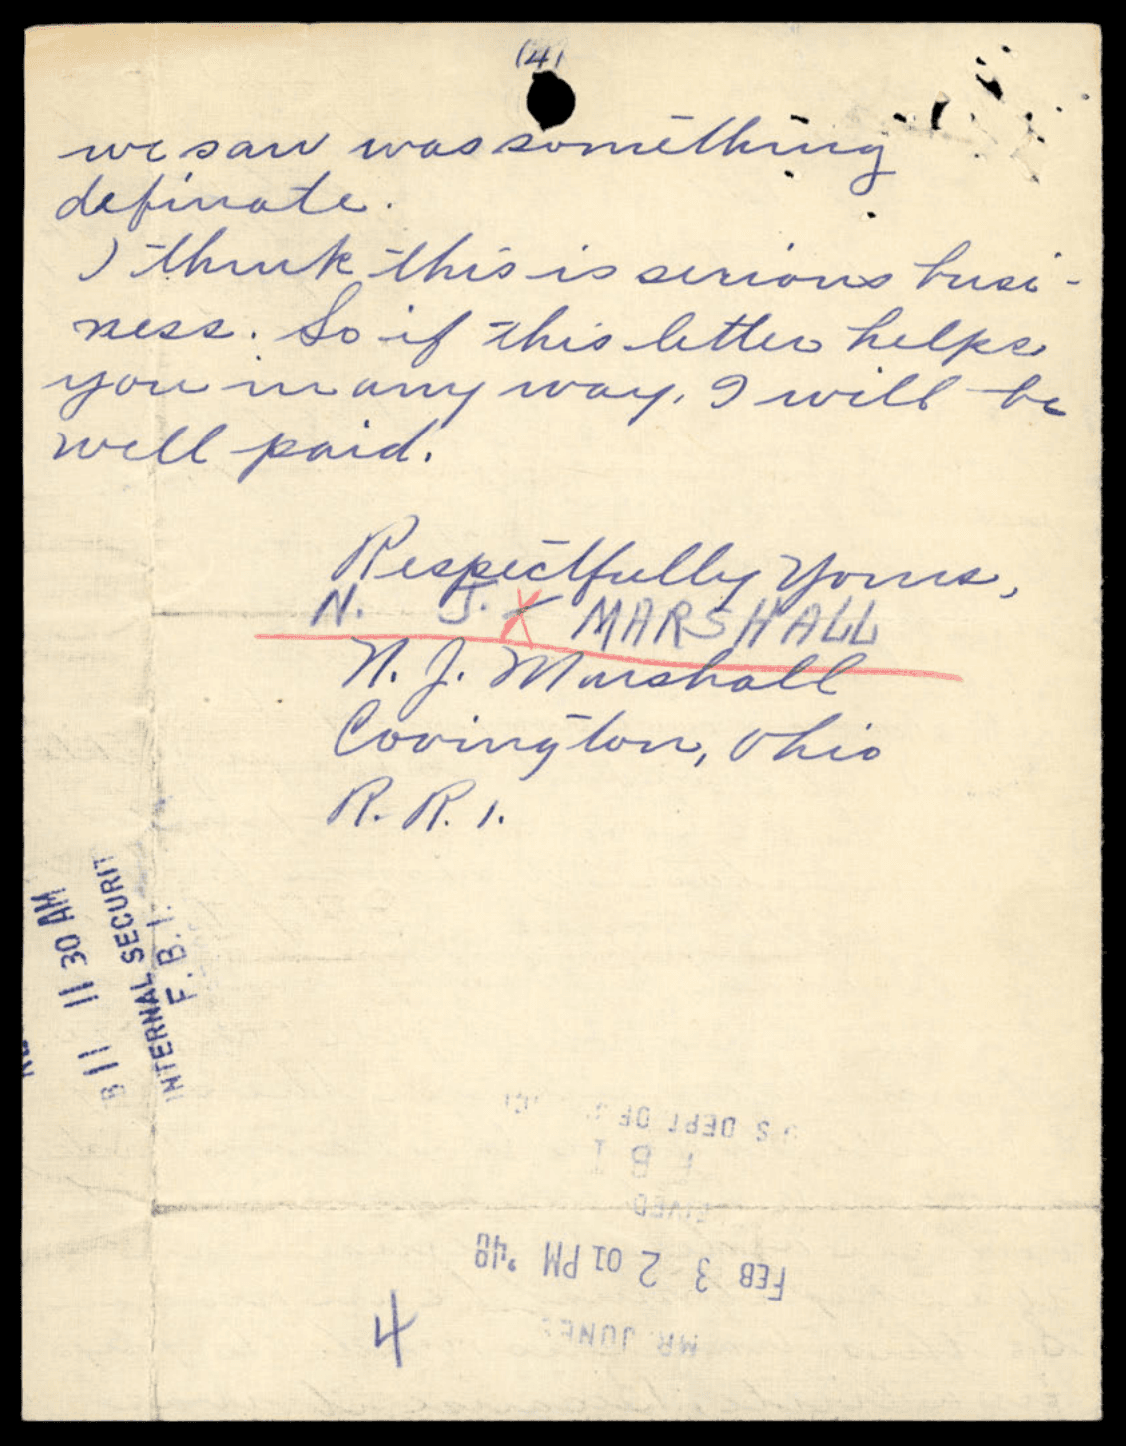 (4)
we saw was something
definate.
I think this is serious busi-
ness. So if this letter helps
you in any way, I will be
well paid.
Respectfully Yours,
N. J. X MARSHALL
N. J. Marshall
Covington, Ohio
R. R. 1.
11 11 30 AM
INTERNAL SECURIT
F. B. I.
U S DEPT OF
F B I
FEB 3 2 01 PM '48
MR. JONES
4